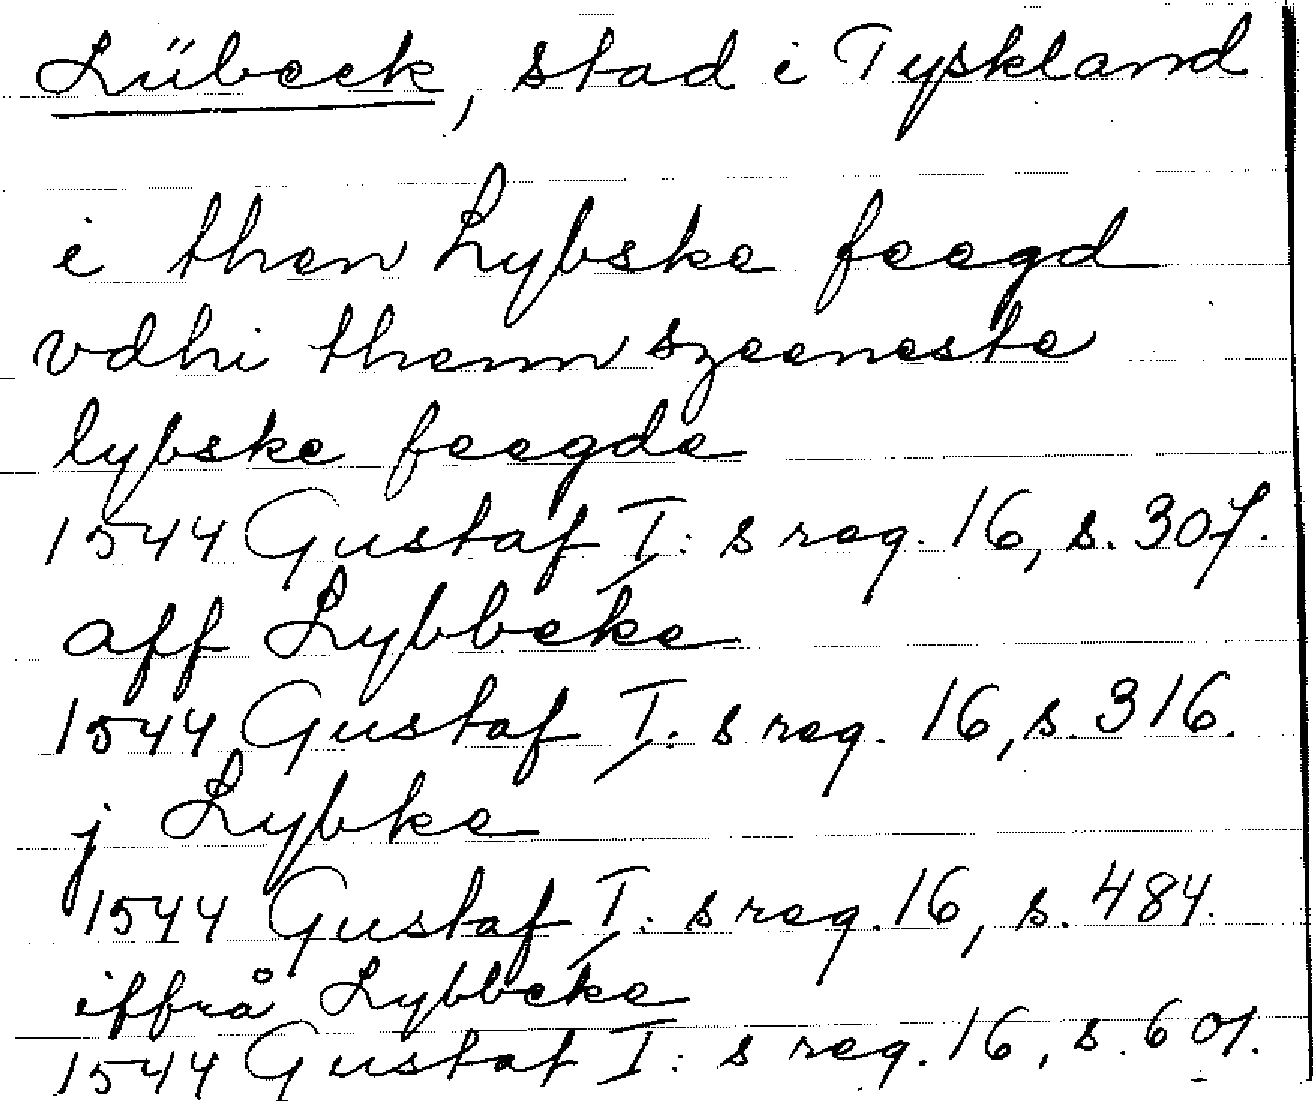 Lübeck, stad i Tyskland
i then Lybske feegd
vdhi thenn szeeneste
lybske feegde
1544 Gustaf I: s reg. 16, s. 307.
aff Lybbeke
1544 Gustaf I. s reg. 16, s. 316.
j Lybke
1544 Gustaf I: s reg. 16, s. 484.
iffrå Lybbeke
1544 Gustaf I: s reg. 16, s. 601.